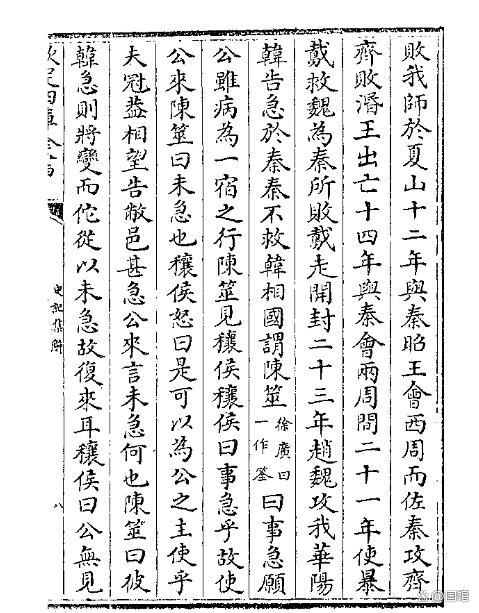 敗我師於夏山十二年與秦昭王會西周而佐秦攻齊
齊敗湣王出亡十四年與秦會兩周間二十一年使暴
戴救魏為秦所敗戴走開封二十三年趙魏攻我華陽
韓告急於秦秦不救韓相國謂陳筮徐廣曰一作筌曰事急願
公雖病為一宿之行陳筮見穰侯穰侯曰事急乎故使
公來陳筮曰未急也穰侯怒曰是可以為公之主使乎
夫冠葢相望告敝邑甚急公來言未急何也陳筮曰彼
韓急則將變而佗從以未急故復來耳穰侯曰公無見
史記集解
八
国馆